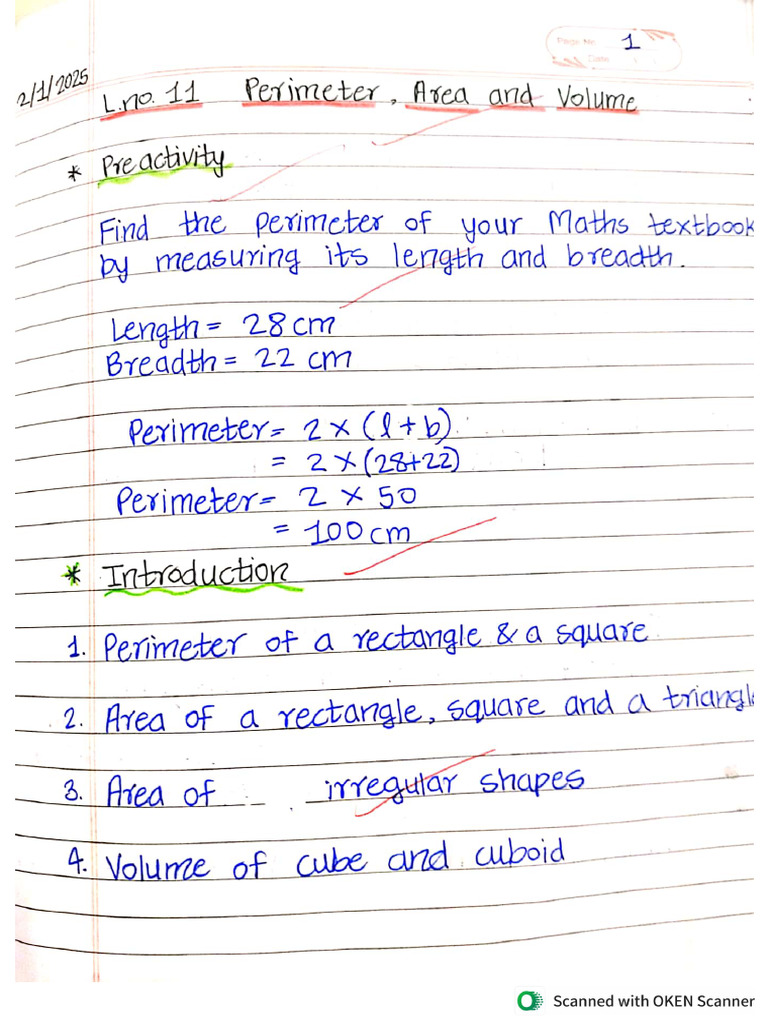 Page No. 1
Date
2/1/2025
L.no. 11 Perimeter, Area and Volume
* Preactivity
Find the perimeter of your Maths textbook
by measuring its length and breadth.
Length = 28 cm
Breadth = 22 cm
Perimeter = 2 × (l + b)
= 2 × (28+22)
Perimeter = 2 × 50
= 100 cm
* Introduction
1. Perimeter of a rectangle & a square
2. Area of a rectangle, square and a triangle
3. Area of irregular shapes
4. Volume of cube and cuboid
Scanned with OKEN Scanner